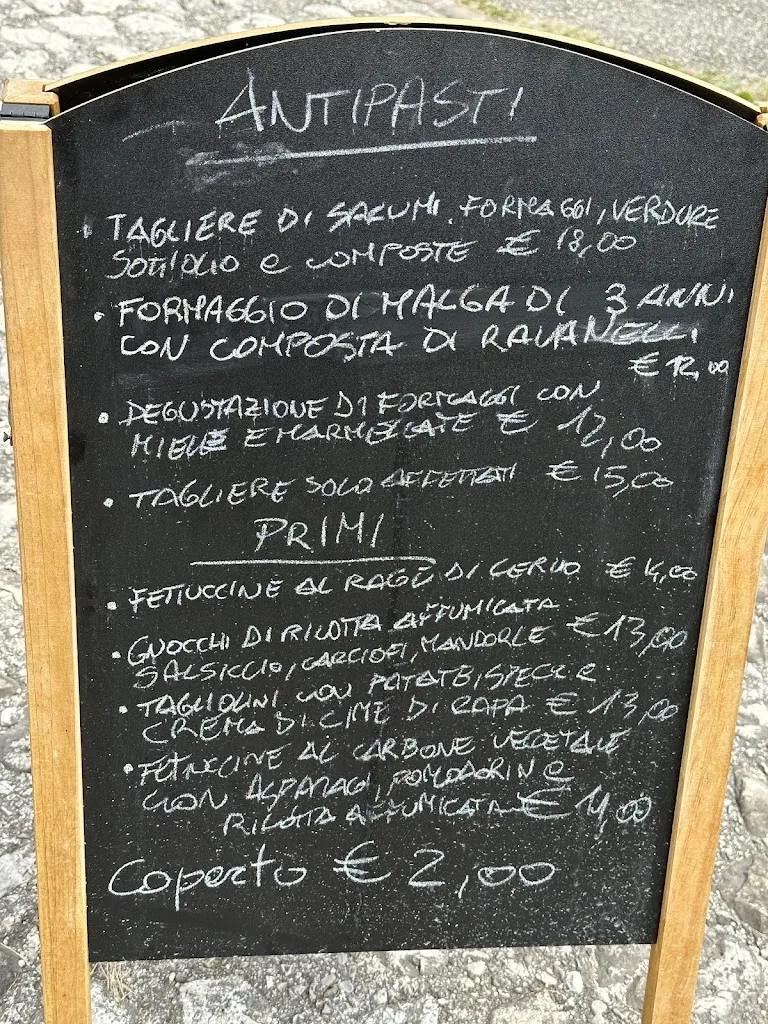 ANTIPASTI
TAGLIERE DI SALUMI, FORMAGGI, VERDURE
SOTT'OLIO e COMPOSTE € 18,00
• FORMAGGIO DI MALGA DI 3 ANNI
CON COMPOSTA DI RAVANELLI
€ 12,00
• DEGUSTAZIONE DI FORMAGGI CON
MIELE E MARMELLATE € 12,00
• TAGLIERE SOLO AFFETTATI € 15,00
PRIMI
• FETTUCCINE AL RAGÙ DI CERVO €
• GNOCCHI DI RICOTTA AFFUMICATA
SALSICCIO, CARCIOFI, MANDORLE € 13,00
• TAGLIOLINI CON PATATE, SPECK E
CREMA DI CIME DI RAPA € 13,00
• FETTUCCINE AL CARBONE VEGETALE
CON ASPARAGI, POMODORINI e
RICOTTA AFFUMICATA € 14,00
Coperto € 2,00